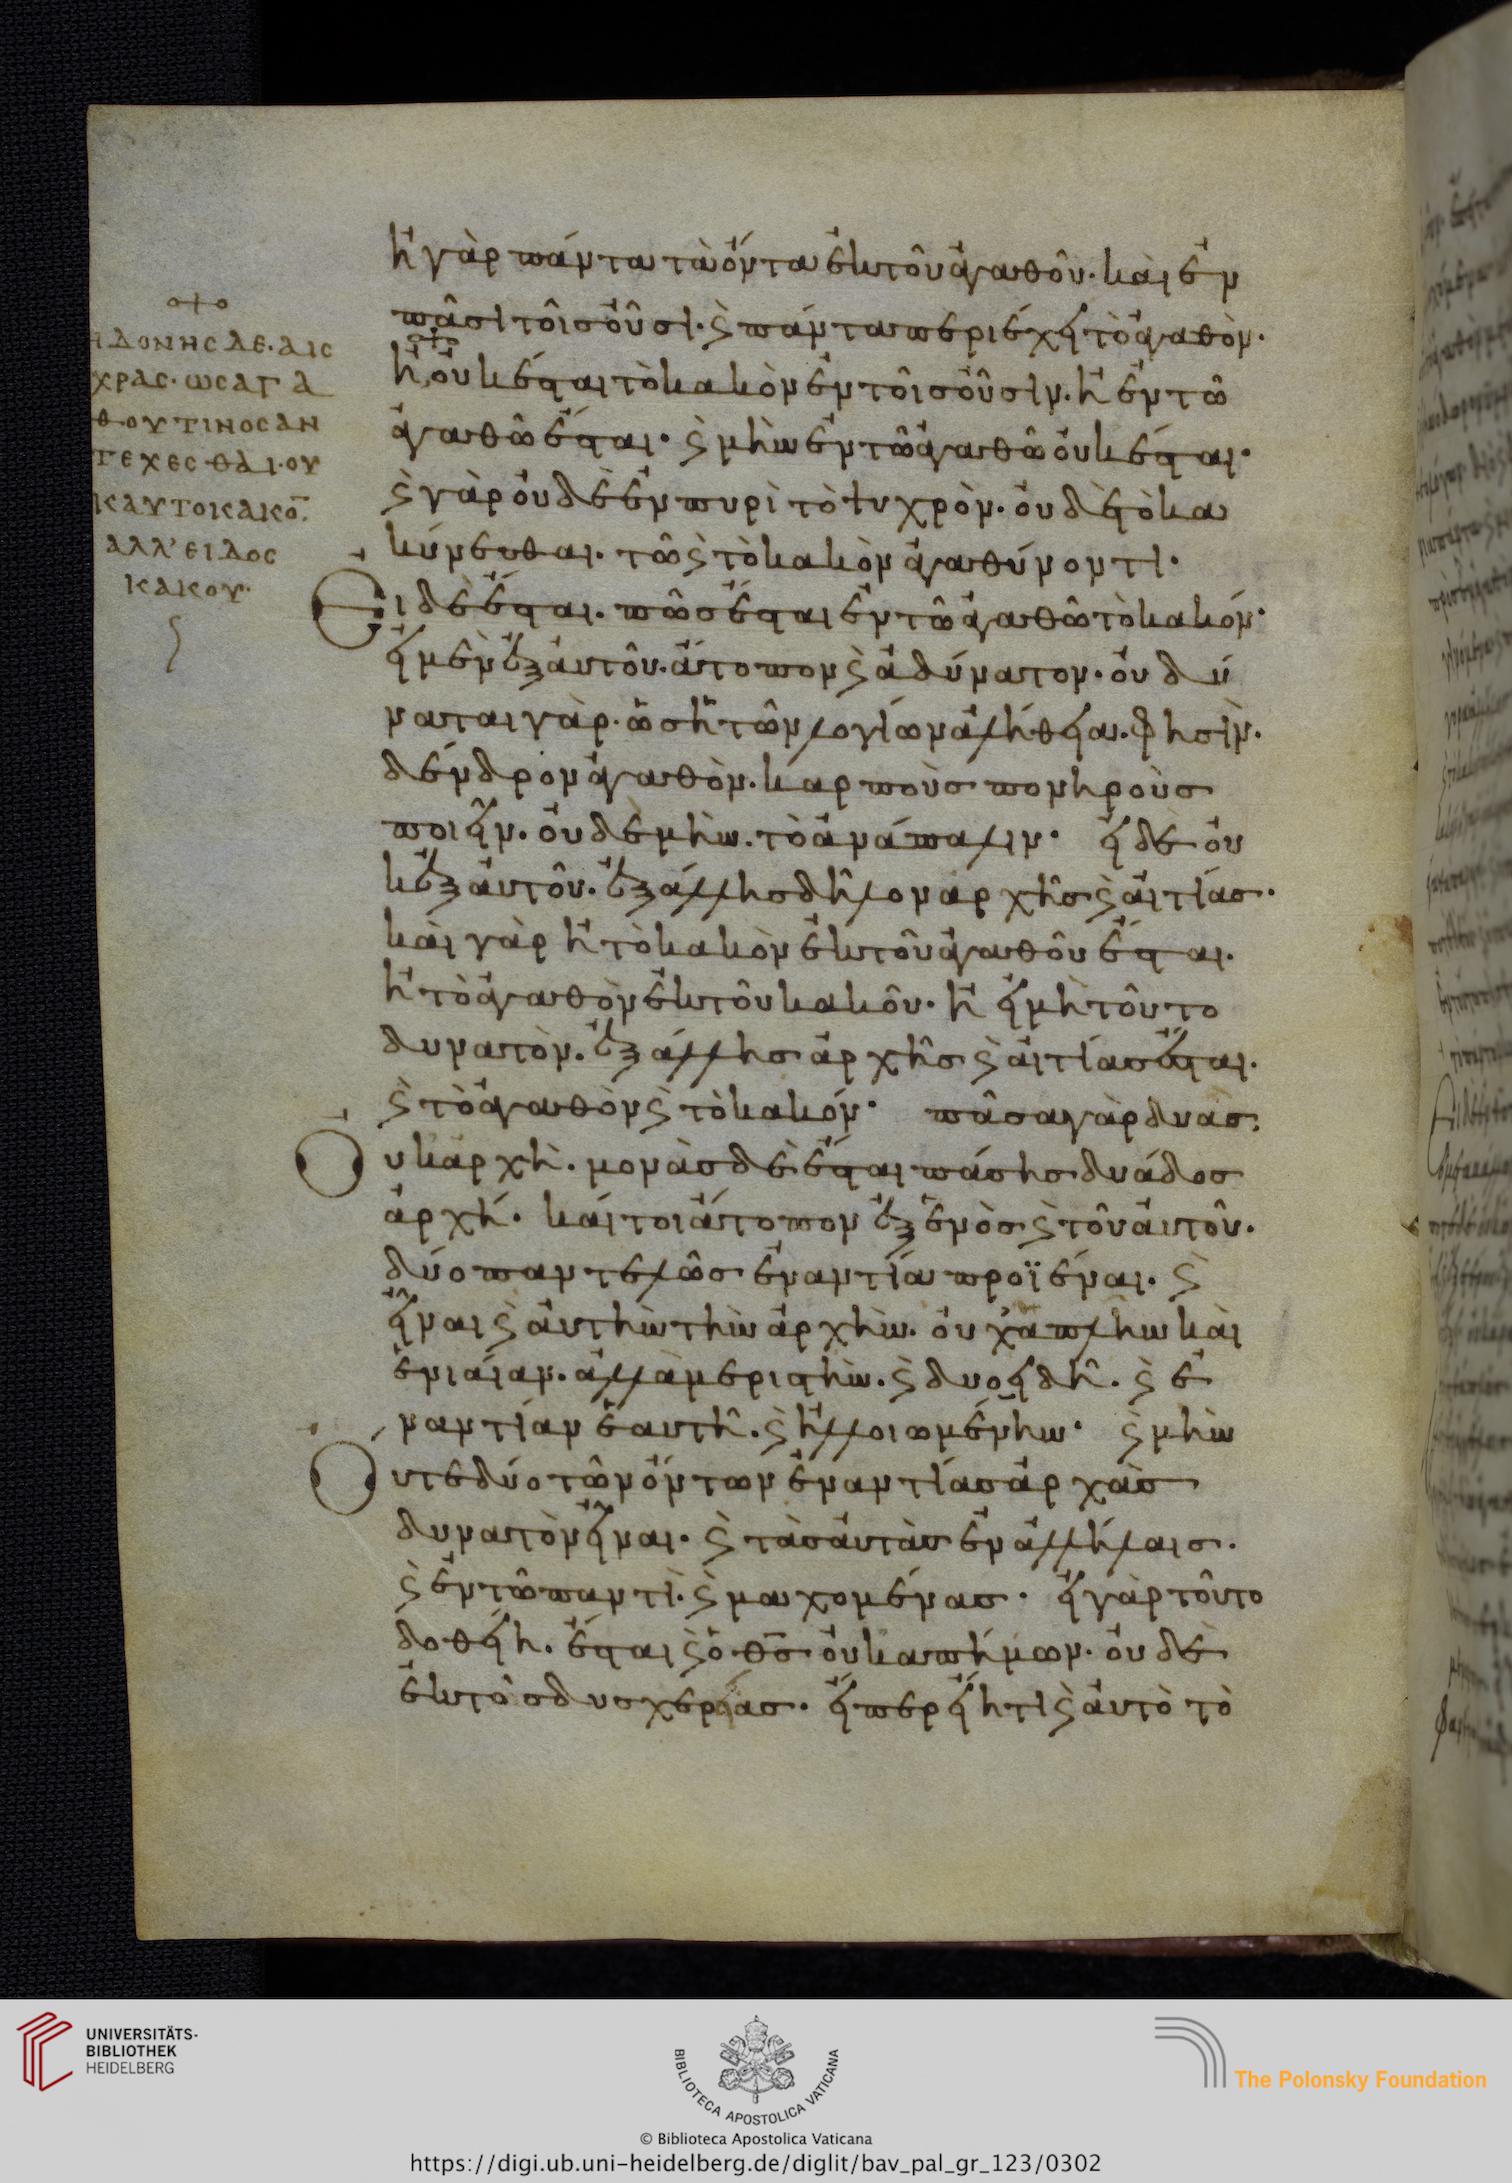 ἢ γὰρ πάντα τὰ ὄντα ἐκ τοῦ ἀγαθοῦ· καὶ ἐν
πᾶσι τοῖς οὖσι· ϗ πάντα περιέχει τὸ ἀγαθὸν·
ἢ οὐκ ἔσται τὸ κακὸν ἐν τοῖς οὖσιν· ἢ ἐν τῶ
ἀγαθῶ ἔσται· ϗ μὴν ἐν τῶ ἀγαθῶ οὐκ ἔσται·
ϗ γὰρ οὐδὲ ἐν πυρὶ τὸ ψυχρὸν· οὐδὲ τὸ κα
κύνεσθαι· τῶ ϗ τὸ κακὸν ἀγαθύνοντι·
Εἰ δὲ ἔσται· πῶς ἔσται ἐν τῶ ἀγαθῶ τὸ κακόν·
εἰ μὲν ἐξ αὐτοῦ· ἄτοπον ϗ ἀδύνατον· οὐ δύ
ναται γὰρ· ὥς ἡ τῶν λογίων ἀλήθεια· φησὶν·
δένδρον ἀγαθὸν· καρποὺς πονηροὺς
ποιεῖν· οὐδὲ μὴν· τὸ ἀνάπαλιν· εἰ δὲ οὐ
κ ἐξ αὐτοῦ· ἐξ ἄλλης δῆλον ἀρχῆς ϗ αἰτίας·
καὶ γὰρ ἢ τὸ κακὸν ἐκ τοῦ ἀγαθοῦ ἔσται·
ἢ τὸ ἀγαθὸν ἐκ τοῦ κακοῦ· ἢ εἰ μὴ τοῦτο
δυνατὸν· ἐξ ἄλλης ἀρχῆς ϗ αἰτίας ἔσται·
ϗ τὸ ἀγαθὸν ϗ τὸ κακόν· πᾶσα γὰρ δυὰς·
Ουκ ἀρχὴ· μονὰς δὲ ἔσται πάσης δυάδος
ἀρχή· καίτοι ἄτοπον ἐξ ἑνὸς ϗ τοῦ αὐτοῦ·
δύο παντελῶς ἐναντία προϊέναι· ϗ
εἶναι ϗ αὐτὴν τὴν ἀρχὴν· οὐχ ἁπλὴν καὶ
ἑνιαίαν· ἀλλὰ μεριστὴν· ϗ δυοειδῆ· ϗ ἐ
ναντίαν ἑαυτῆ· ϗ ἠλλοιωμένην· ϗ μὴν
Ουτε δύο τῶν ὄντων ἐναντίας ἀρχὰς
δυνατὸν εἶναι· ϗ τὰς αὐτὰς ἐν ἀλλήλαις·
ϗ ἐν τῶ παντὶ· ϗ μαχομένας· εἰ γὰρ τοῦτο
δοθείη· ἔσται ϗ ὁ θς οὐκ ἀπήμων· οὐδὲ
ἐκτὸς δυσχερείας· εἴπερ εἴη τι ϗ αὐτὸ τὸ
ΗΔΟΝΗΣ ΔΕ· ΑΙΣ
ΧΡΑΣ· ΩΣ ΑΓΑ
ΘΟΥ ΤΙΝΟΣ ΑΝ
ΤΕΧΕΣΘΑΙ· ΟΥ
Κ ΑΥΤΟΚΑΚΟ̅·
ΑΛΛ' ΕΙΔΟΣ
ΚΑΚΟΥ·
UNIVERSITÄTS-
BIBLIOTHEK
HEIDELBERG
BIBLIOTECA APOSTOLICA VATICANA
The Polonsky Foundation
© Biblioteca Apostolica Vaticana
https://digi.ub.uni-heidelberg.de/diglit/bav_pal_gr_123/0302